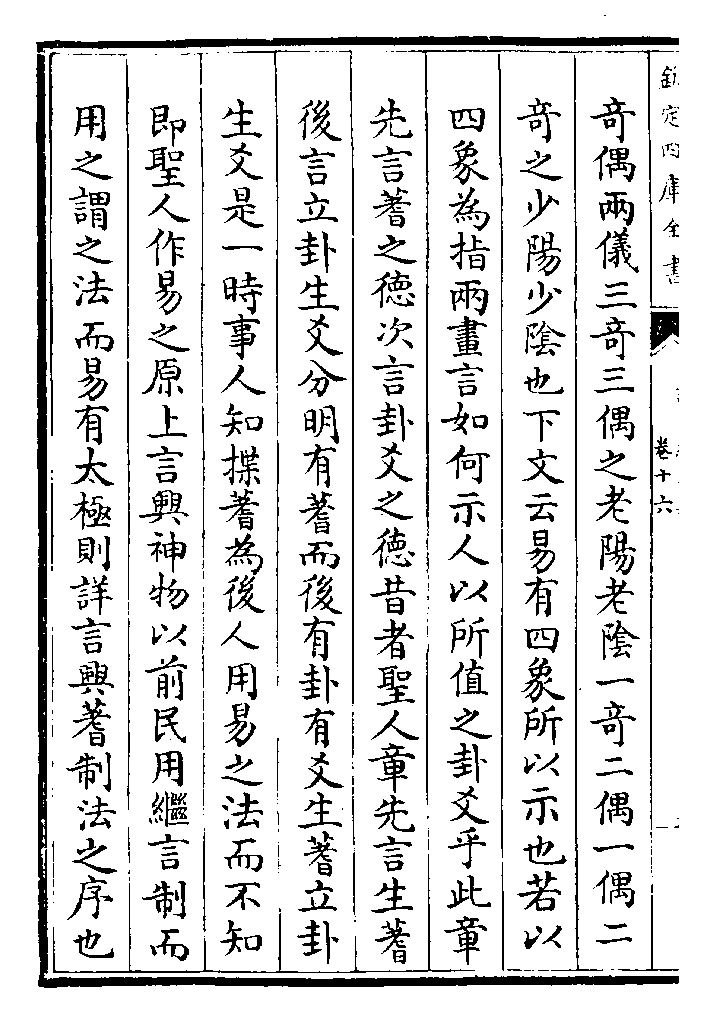 欽定四庫全書
卷十六
奇偶兩儀三奇三偶之老陽老陰一奇二偶一偶二
奇之少陽少陰也下文云易有四象所以示也若以
四象為指兩畫言如何示人以所值之卦爻乎此章
先言蓍之德次言卦爻之德昔者聖人章先言生蓍
後言立卦生爻分明有蓍而後有卦有爻生蓍立卦
生爻是一時事人知揲蓍為後人用易之法而不知
即聖人作易之原上言興神物以前民用繼言制而
用之謂之法而易有太極則詳言興蓍制法之序也